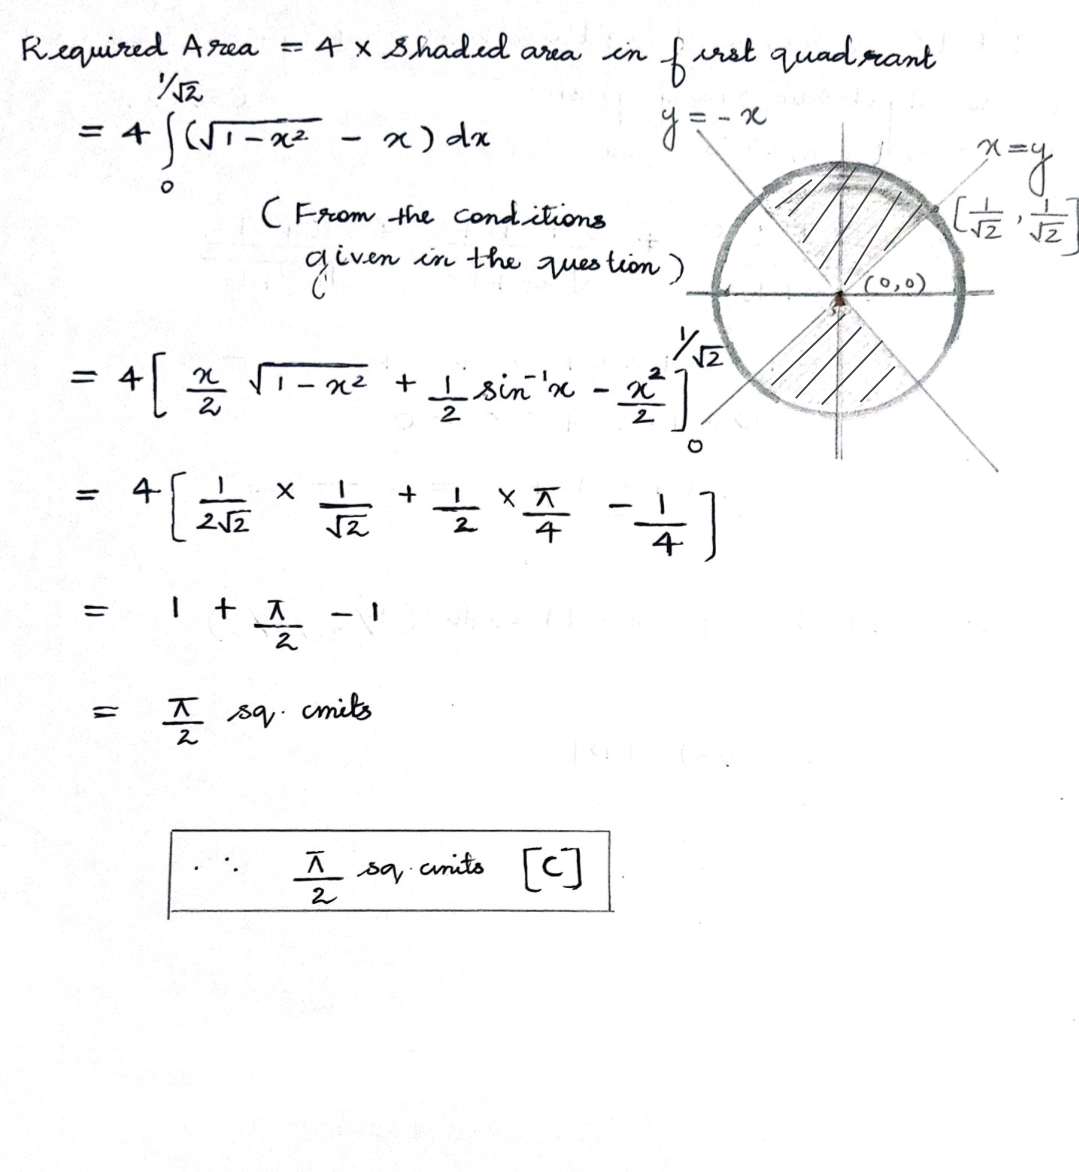 Required Area = 4 × Shaded area in first quadrant
= 4 ∫₀^{1/√2} (√(1-x²) - x) dx
(From the conditions
given in the question)
y = -x
x = y
[1/√2, 1/√2]
(0,0)
= 4[x/2 √(1-x²) + 1/2 sin⁻¹x - x²/2]₀^{1/√2}
= 4[1/(2√2) × 1/√2 + 1/2 × π/4 - 1/4]
= 1 + π/2 - 1
= π/2 sq. units
∴ π/2 sq. units [C]